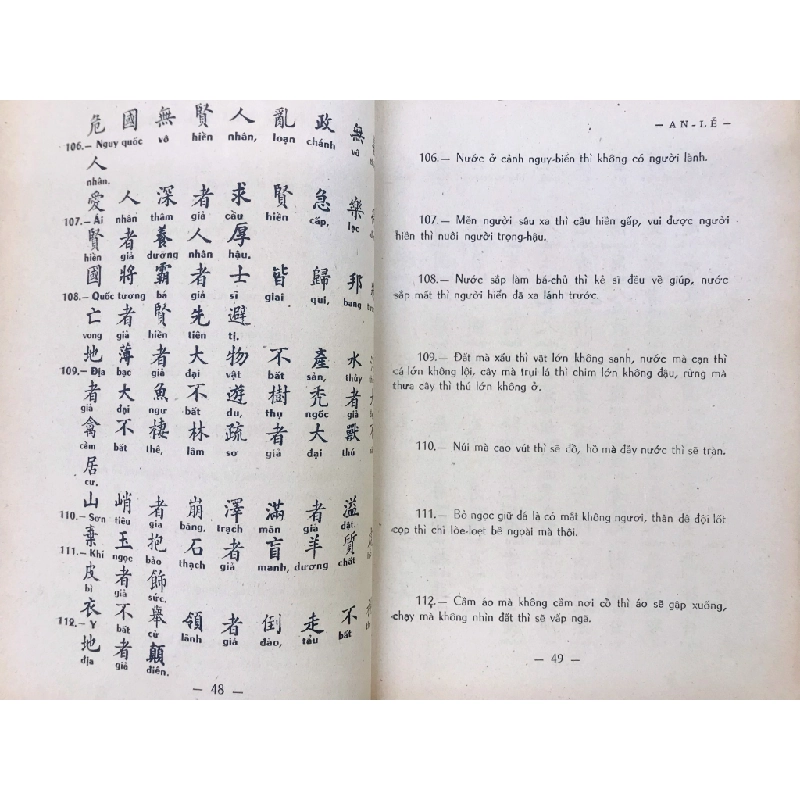 危 國 無 賢 人 亂 政 無
106.— Nguy quốc vô hiền nhân, loạn chánh vô
人
nhân.
愛 人 深 者 求 賢 急 樂
107.— Ái nhân thâm giả cầu hiền cấp, lạc
賢 者 養 人 厚
hiền giả dưỡng nhân hậu.
國 將 霸 者 士 皆 歸 邦
108.— Quốc tương bá giả sĩ giai qui, bang
亡 者 賢 先 避
vong giả hiền tiên tị.
地 薄 者 大 物 不 產 水
109.— Địa bạc giả đại vật bất sản, thủy
者 大 魚 不 遊 樹 禿 者
giả đại ngư bất du, thụ ngốc giả
禽 不 棲 林 疏 者 大 獸
cầm bất thê, lâm sơ giả đại thú
居
cư.
山 峭 者 崩 澤 滿 者 溢
110.— Sơn tiêu giả băng, trạch mãn giả dật.
棄 玉 抱 石 者 盲 羊 質
111.— Khí ngọc bào thạch giả manh, dương chất
皮 者 飾
bì giả sức.
衣 不 舉 領 者 倒 走 不
112.— Y bất cử lãnh giả đảo, tẩu bất
地 者 顛
địa giả điên.
— 48 —
— AN-LỄ —
106.— Nước ở cảnh nguy-biến thì không có người lành.
107.— Mến người sâu xa thì cầu hiền gấp, vui được người
hiền thì nuôi người trọng-hậu.
108.— Nước sắp làm bá-chủ thì kẻ sĩ đều về giúp, nước
sắp mất thì người hiền đã xa lánh trước.
109.— Đất mà xấu thì vật lớn không sanh, nước mà cạn thì
cá lớn không lội, cây mà trụi lá thì chim lớn không đậu, rừng mà
thưa cây thì thú lớn không ở.
110.— Núi mà cao vút thì sẽ đổ, hồ mà đầy nước thì sẽ tràn.
111.— Bỏ ngọc giữ đá là có mắt không ngươi, thân dê đội lốt
cọp thì chỉ lòe-loẹt bề ngoài mà thôi.
112.— Cầm áo mà không cầm nơi cổ thì áo sẽ gập xuống,
chạy mà không nhìn đất thì sẽ vấp ngã.
— 49 —